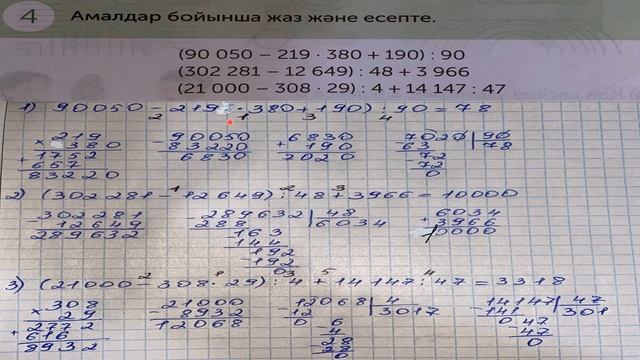 4 Амалдар бойынша жаз және есепте.
(90 050 – 219 · 380 + 190) : 90
(302 281 – 12 649) : 48 + 3 966
(21 000 – 308 · 29) : 4 + 14 147 : 47
1) 90050 – 219 · 380 + 190) : 90 = 78
2 1 3 4
219 90050 6830 7020 90
× 380 – 83220 + 190 63 78
+ 1752 6830 2020 72
657 72
83220 0
2) (302281 – 12649) : 48 + 3966 = 10000
1 2 3
– 302281 – 289632 48 + 6034
12649 288 6034 3966
289632 163 10000
144
– 192
192
0
3) (21000 – 308 · 29) : 4 + 14147 : 47 = 3318
2 1 3 5 4
× 308 – 21000 – 12068 4 – 14147 47
29 8932 12 3017 141 301
+ 2772 12068 0 6 0 47
616 4 47
8932 28 0
28
0